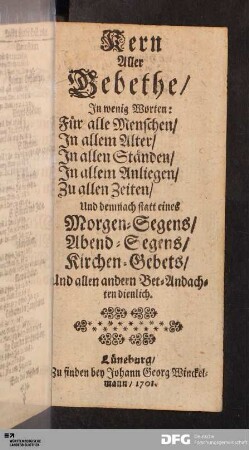 Kern
Aller
Gebethe/
In wenig Worten:
Für alle Menschen/
In allem Alter/
In allen Ständen/
In allem Anliegen/
Zu allen Zeiten/
Und demnach statt eines
Morgen-Segens/
Abend-Segens/
Kirchen-Gebets/
Und allen andern Bet-Andach-
ten dienlich.
Lüneburg/
Zu finden bey Johann Georg Winckel-
mann/ 1701.
DFG